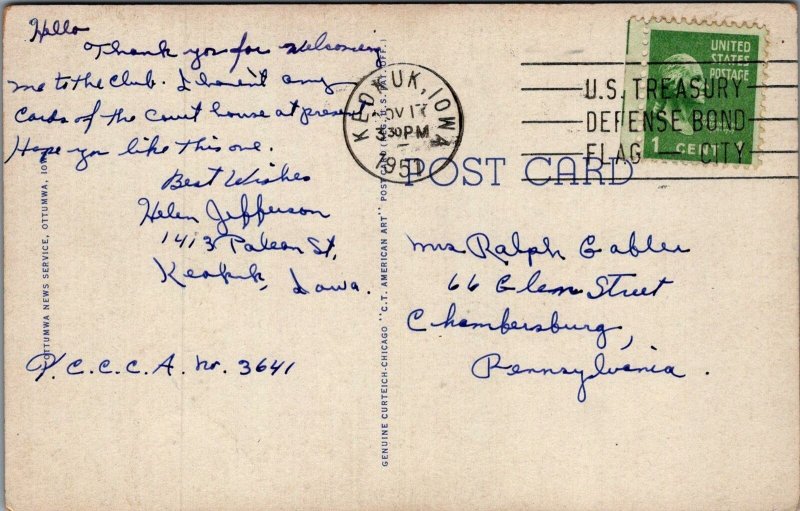 Hello
Thank you for welcoming
me to the club. I haven't any
cards of the court house at present
Hope you like this one.
Best Wishes
Helen Jefferson
1413 St.
Keokuk, Iowa.
P.C.C.C.A. No. 3641
OTTUMWA NEWS SERVICE, OTTUMWA, IOWA
GENUINE CURTEICH-CHICAGO "C.T. AMERICAN ART" POST CARD (REG. U.S. PAT. OFF.)
KEOKUK, IOWA
NOV 17
3 30 PM
1951
U.S. TREASURY
DEFENSE BOND
FLAG CITY
UNITED
STATES
POSTAGE
1 CENT
POST CARD
Mrs Ralph Gabler
66 Glen Street
Chambersburg,
Pennsylvania.